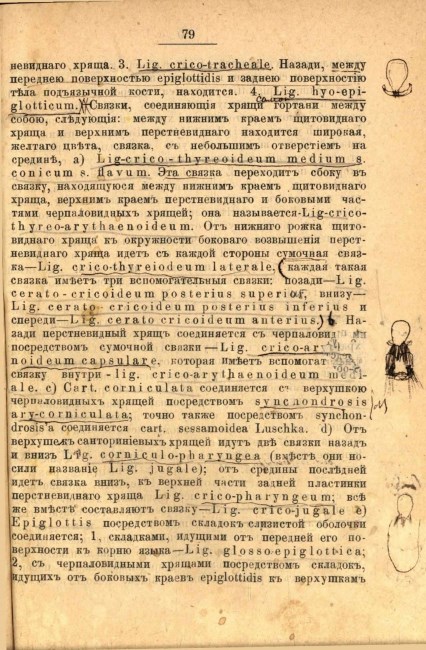 79
невиднаго хряща. 3. Lig. crico-tracheale. Назади, между
переднею поверхностью epiglottidis и заднею поверхностію
тѣла подъязычной кости, находится. 4. Lig. hyo-epi-
glotticum. Связки, соединяющія хрящи гортани между
собою, слѣдующія: между нижнимъ краемъ щитовиднаго
хряща и верхнимъ перстневиднаго находится широкая,
желтаго цвѣта, связка, съ небольшимъ отверстіемъ на
срединѣ, а) Lig-crico-thyreoideum medium s.
conicum s. flavum. Эта связка переходитъ сбоку въ
связку, находящуюся между нижнимъ краемъ щитовиднаго
хряща, верхнимъ краемъ перстневиднаго и боковыми час-
тями черпаловидныхъ хрящей; она называется-Lig-crico-
thyreo-arythaenoideum. Отъ нижняго рожка щито-
виднаго хряща къ окружности боковаго возвышенія перст-
невиднаго хряща идетъ съ каждой стороны сумочная связ-
ка—Lig. crico-thyreiodeum laterale, каждая такая
связка имѣетъ три вспомогательныя связки: позади—Lig.
cerato-cricoideum posterius superior, внизу—
Lig. cerato-cricoideum posterius inferius и
спереди—Lig. cerato cricoideum anterius. b На-
зади перстневидный хрящъ соединяется съ черпаловид
посредствомъ сумочной связки—Lig. crico-ar
noideum capsulare, которая имѣетъ вспомогат
связку внутри-lig. crico-arythaenoideum me
ale. c) Cart. corniculata соединяется съ верхушкою
черпаловидныхъ хрящей посредствомъ synchondrosis
ary-corniculata; точно также посредствомъ synchon-
drosis'a соединяется cart. sessamoidea Luschka. d) Отъ
верхушекъ санториніевыхъ хрящей идутъ двѣ связки назадъ
и внизъ Lig. corniculo-pharyngea (вмѣстѣ они но-
сили названіе Lig. jugale); отъ средины послѣдней
идетъ связка внизъ, къ верхней части задней пластинки
перстневиднаго хряща Lig. crico-pharyngeum; всѣ
же вмѣстѣ составляютъ связку—Lig. crico-jugale e)
Epiglottis посредствомъ складокъ слизистой оболочки
соединяется; 1, складками, идущими отъ передней его по-
верхности къ корню языка—Lig. glosso-epiglottica;
2, съ черпаловидными хрящами посредствомъ складокъ,
идущихъ отъ боковыхъ краевъ epiglottidis къ верхушкамъ